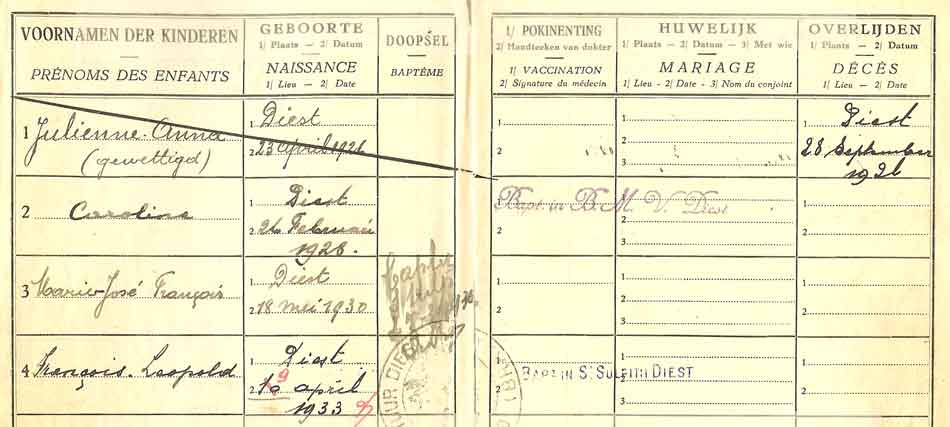 VOORNAMEN DER KINDEREN
PRÉNOMS DES ENFANTS
GEBOORTE
1/ Plaats — 2/ Datum
NAISSANCE
1/ Lieu — 2/ Date
DOOPSEL
BAPTÊME
1/ POKINENTING
2/ Handteeken van dokter
1/ VACCINATION
2/ Signature du médecin
HUWELIJK
1/ Plaats — 2/ Datum — 3/ Met wie
MARIAGE
1/ Lieu - 2/ Date - 3/ Nom du conjoint
OVERLIJDEN
1/ Plaats — 2/ Datum
DÉCÈS
1/ Lieu — 2/ Date
1 Julienne-Anna
(gewettigd)
1 Diest
2 23 april 1926
1
2
1
2
3
1 Diest
2 28 September
1926
2 Carolina
1 Diest
2 Februari
1928.
Bapt. in B. M. V. Diest
2
2
3
1
2
3 Marie-José François
1 Diest
2 18 mei 1930
1
2
1
2
3
1
2
4 François-Leopold
1 Diest
2 april
1933
1 BAPT. IN S. SULPITII DIEST
2
1
2
3
1
2